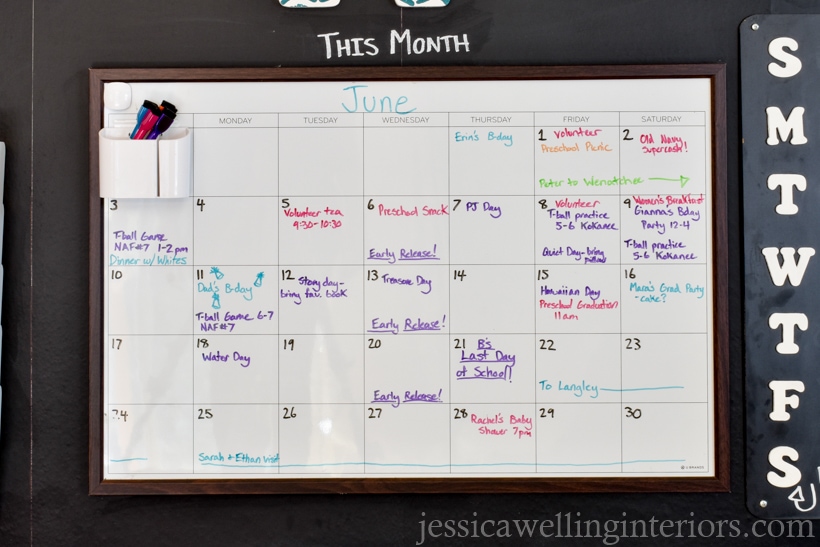 THIS MONTH
June
MONDAY TUESDAY WEDNESDAY THURSDAY FRIDAY SATURDAY
Erin's B-day
1 Volunteer
Preschool Picnic
Peter to Wenatchee
2 Old Navy
Supercash!
3
T-ball Game
NAF#7 1-2pm
Dinner w/ Whites
4
5
Volunteer tea
9:30-10:30
6 Preschool Snack
Early Release!
7 PJ Day
8 Volunteer
T-ball practice
5-6 Kokanee
Quiet Day-bring
9 Women's Breakfast
Gianna's Bday
Party 12-4
T-ball practice
5-6 Kokanee
10
11
Dad's B-day
T-ball Game 6-7
NAF#7
12 Story day-
bring fav. book
13 Treasure Day
Early Release!
14
15
Hawaiian Day
Preschool Graduation
11am
16
Mara's Grad Party
-cake?
17
18
Water Day
19
20
Early Release!
21 B's
Last Day
of School!
22
To Langley
23
24
25
Sarah + Ethan visit
26
27
28 Rachel's Baby
Shower 7pm
29
30
U BRANDS
S
M
T
W
T
F
S
jessicawellinginteriors.com